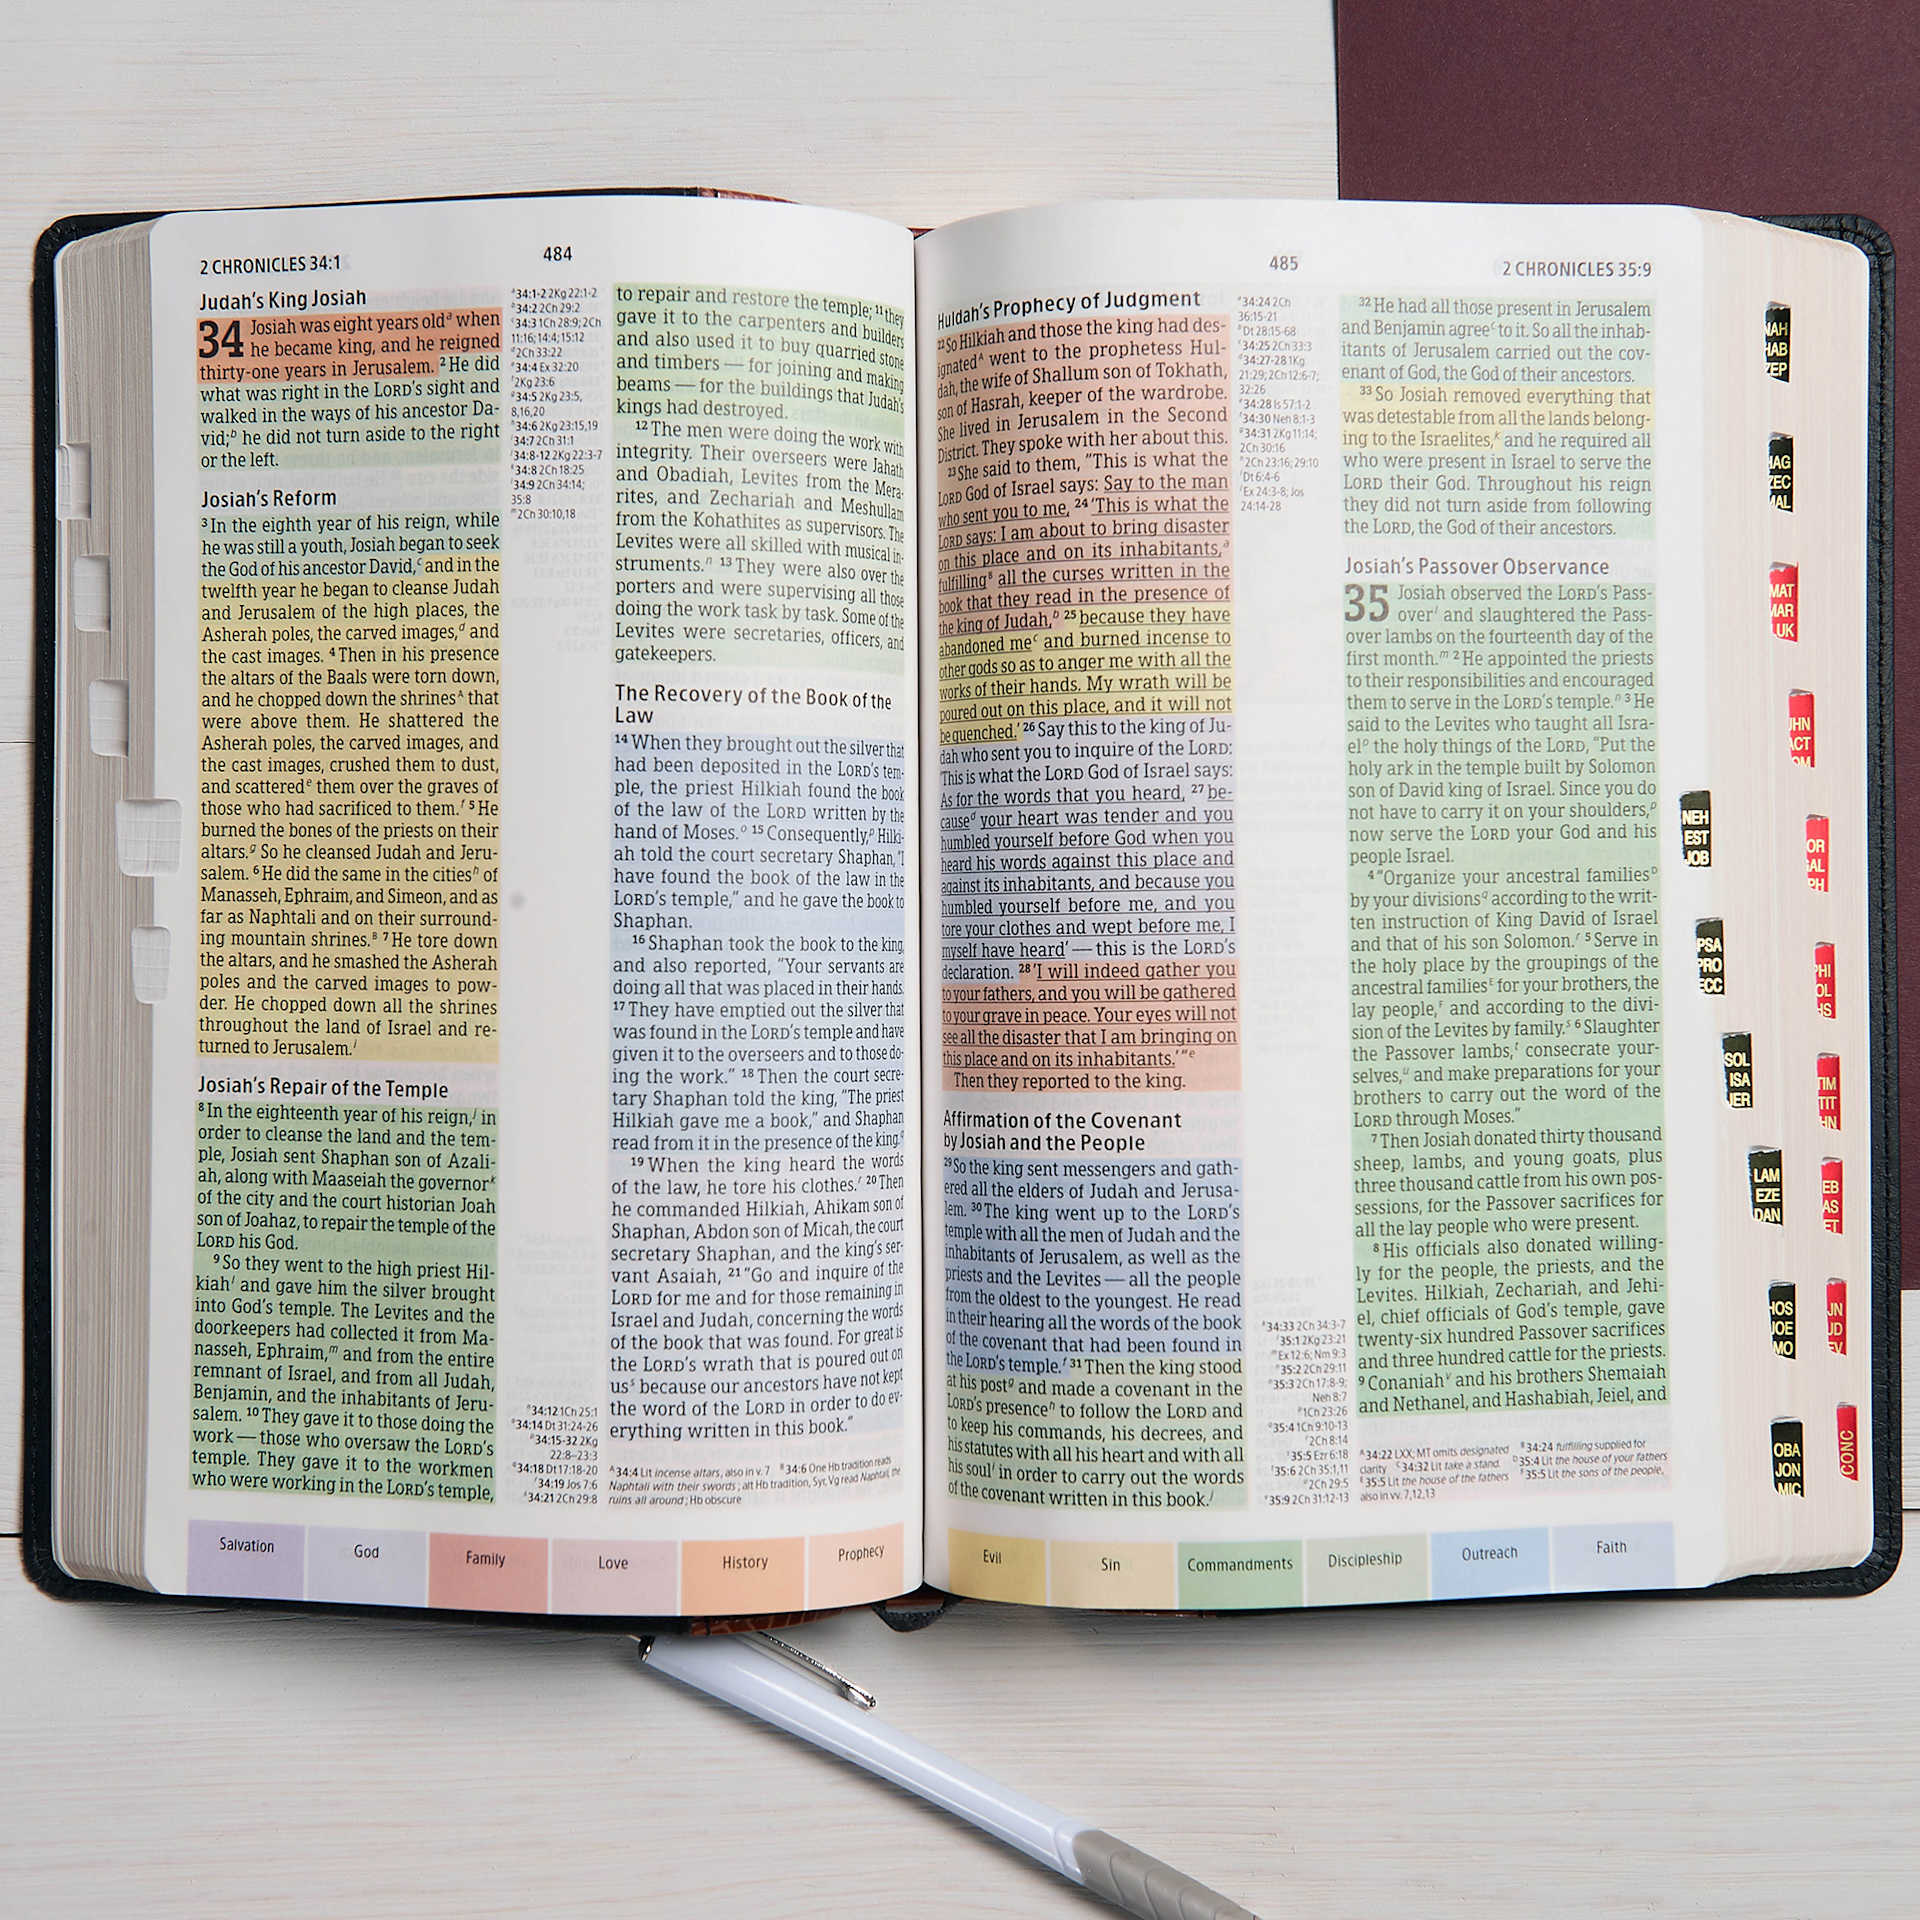 2 CHRONICLES 34:1
484
Judah's King Josiah
34 Josiah was eight years oldᵃ when
he became king, and he reigned
thirty-one years in Jerusalem. ²He did
what was right in the LORD's sight and
walked in the ways of his ancestor Da-
vid;ᵇ he did not turn aside to the right
or the left.
Josiah's Reform
³In the eighth year of his reign, while
he was still a youth, Josiah began to seek
the God of his ancestor David,ᶜ and in the
twelfth year he began to cleanse Judah
and Jerusalem of the high places, the
Asherah poles, the carved images,ᵈ and
the cast images. ⁴Then in his presence
the altars of the Baals were torn down,
and he chopped down the shrinesᴬ that
were above them. He shattered the
Asherah poles, the carved images, and
the cast images, crushed them to dust,
and scatteredᵉ them over the graves of
those who had sacrificed to them.ᶠ ⁵He
burned the bones of the priests on their
altars.ᵍ So he cleansed Judah and Jeru-
salem. ⁶He did the same in the citiesʰ of
Manasseh, Ephraim, and Simeon, and as
far as Naphtali and on their surround-
ing mountain shrines.ᴮ ⁷He tore down
the altars, and he smashed the Asherah
poles and the carved images to pow-
der. He chopped down all the shrines
throughout the land of Israel and re-
turned to Jerusalem.ⁱ
Josiah's Repair of the Temple
⁸In the eighteenth year of his reign,ʲ in
order to cleanse the land and the tem-
ple, Josiah sent Shaphan son of Azali-
ah, along with Maaseiah the governorᵏ
of the city and the court historian Joah
son of Joahaz, to repair the temple of the
LORD his God.
⁹So they went to the high priest Hil-
kiahˡ and gave him the silver brought
into God's temple. The Levites and the
doorkeepers had collected it from Ma-
nasseh, Ephraim,ᵐ and from the entire
remnant of Israel, and from all Judah,
Benjamin, and the inhabitants of Jeru-
salem. ¹⁰They gave it to those doing the
work — those who oversaw the LORD's
temple. They gave it to the workmen
who were working in the LORD's temple,
ᵃ34:1-2 2Kg 22:1-2
ᵇ34:2 2Ch 29:2
ᶜ34:3 1Ch 28:9; 2Ch
11:16; 14:4; 15:12
ᵈ2Ch 33:22
ᵉ34:4 Ex 32:20
ᶠ2Kg 23:6
ᵍ34:5 2Kg 23:5,
8,16,20
ʰ34:6 2Kg 23:15,19
ⁱ34:7 2Ch 31:1
ʲ34:8-12 2Kg 22:3-7
ᵏ34:8 2Ch 18:25
ˡ34:9 2Ch 34:14;
35:8
ᵐ2Ch 30:10,18
ⁿ34:12 1Ch 25:1
ᵒ34:14 Dt 31:24-26
ᵖ34:15-32 2Kg
22:8–23:3
ᵠ34:18 Dt 17:18-20
ʳ34:19 Jos 7:6
ˢ34:21 2Ch 29:8
to repair and restore the temple; ¹¹they
gave it to the carpenters and builders
and also used it to buy quarried stone
and timbers — for joining and making
beams — for the buildings that Judah's
kings had destroyed.
¹²The men were doing the work with
integrity. Their overseers were Jahath
and Obadiah, Levites from the Mera-
rites, and Zechariah and Meshullam
from the Kohathites as supervisors. The
Levites were all skilled with musical in-
struments.ⁿ ¹³They were also over the
porters and were supervising all those
doing the work task by task. Some of the
Levites were secretaries, officers, and
gatekeepers.
The Recovery of the Book of the
Law
¹⁴When they brought out the silver that
had been deposited in the LORD's tem-
ple, the priest Hilkiah found the book
of the law of the LORD written by the
hand of Moses.ᵒ ¹⁵Consequently,ᵖ Hilki-
ah told the court secretary Shaphan, "I
have found the book of the law in the
LORD's temple," and he gave the book to
Shaphan.
¹⁶Shaphan took the book to the king,
and also reported, "Your servants are
doing all that was placed in their hands.
¹⁷They have emptied out the silver that
was found in the LORD's temple and have
given it to the overseers and to those do-
ing the work." ¹⁸Then the court secre-
tary Shaphan told the king, "The priest
Hilkiah gave me a book," and Shaphan
read from it in the presence of the king.ᵠ
¹⁹When the king heard the words
of the law, he tore his clothes.ʳ ²⁰Then
he commanded Hilkiah, Ahikam son of
Shaphan, Abdon son of Micah, the court
secretary Shaphan, and the king's ser-
vant Asaiah, ²¹"Go and inquire of the
LORD for me and for those remaining in
Israel and Judah, concerning the words
of the book that was found. For great is
the LORD's wrath that is poured out on
usˢ because our ancestors have not kept
the word of the LORD in order to do ev-
erything written in this book."
ᴬ34:4 Lit incense altars, also in v. 7 ᴮ34:6 One Hb tradition reads
Naphtali with their swords; alt Hb tradition, Syr, Vg read Naphtali, the
ruins all around; Hb obscure
Salvation
God
Family
Love
History
Prophecy
485
2 CHRONICLES 35:9
Huldah's Prophecy of Judgment
²²So Hilkiah and those the king had des-
ignatedᴬ went to the prophetess Hul-
dah, the wife of Shallum son of Tokhath,
son of Hasrah, keeper of the wardrobe.
She lived in Jerusalem in the Second
District. They spoke with her about this.
²³She said to them, "This is what the
LORD God of Israel says: Say to the man
who sent you to me, ²⁴'This is what the
LORD says: I am about to bring disaster
on this place and on its inhabitants,ᵃ
fulfillingᴮ all the curses written in the
book that they read in the presence of
the king of Judah,ᵇ ²⁵because they have
abandoned meᶜ and burned incense to
other gods so as to anger me with all the
works of their hands. My wrath will be
poured out on this place, and it will not
be quenched.' ²⁶Say this to the king of Ju-
dah who sent you to inquire of the LORD:
'This is what the LORD God of Israel says:
As for the words that you heard, ²⁷be-
causeᵈ your heart was tender and you
humbled yourself before God when you
heard his words against this place and
against its inhabitants, and because you
humbled yourself before me, and you
tore your clothes and wept before me, I
myself have heard' — this is the LORD's
declaration. ²⁸'I will indeed gather you
to your fathers, and you will be gathered
to your grave in peace. Your eyes will not
see all the disaster that I am bringing on
this place and on its inhabitants.'"ᵉ
Then they reported to the king.
Affirmation of the Covenant
by Josiah and the People
²⁹So the king sent messengers and gath-
ered all the elders of Judah and Jerusa-
lem. ³⁰The king went up to the LORD's
temple with all the men of Judah and the
inhabitants of Jerusalem, as well as the
priests and the Levites — all the people
from the oldest to the youngest. He read
in their hearing all the words of the book
of the covenant that had been found in
the LORD's temple.ᶠ ³¹Then the king stood
at his postᵍ and made a covenant in the
LORD's presenceʰ to follow the LORD and
to keep his commands, his decrees, and
his statutes with all his heart and with all
his soulⁱ in order to carry out the words
of the covenant written in this book.ʲ
ᵃ34:24 2Ch
36:15-21
ᵇDt 28:15-68
ᶜ34:25 2Ch 33:3
ᵈ34:27-28 1Kg
21:29; 2Ch 12:6-7;
32:26
ᵉ34:28 Is 57:1-2
ᶠ34:30 Neh 8:1-3
ᵍ34:31 2Kg 11:14;
2Ch 30:16
ʰ2Ch 23:16; 29:10
ⁱDt 6:4-6
ʲEx 24:3-8; Jos
24:14-28
ᵏ34:33 2Ch 34:3-7
ˡ35:1 2Kg 23:21
ᵐEx 12:6; Nm 9:3
ⁿ35:2 2Ch 29:11
ᵒ35:3 2Ch 17:8-9;
Neh 8:7
ᵖ1Ch 23:26
ᵠ35:4 1Ch 9:10-13
ʳ2Ch 8:14
ˢ35:5 Ezr 6:18
ᵗ35:6 2Ch 35:1,11
ᵘ2Ch 29:5
ᵛ35:9 2Ch 31:12-13
³²He had all those present in Jerusalem
and Benjamin agreeᶜ to it. So all the inhab-
itants of Jerusalem carried out the cov-
enant of God, the God of their ancestors.
³³So Josiah removed everything that
was detestable from all the lands belong-
ing to the Israelites,ᵏ and he required all
who were present in Israel to serve the
LORD their God. Throughout his reign
they did not turn aside from following
the LORD, the God of their ancestors.
Josiah's Passover Observance
35 Josiah observed the LORD's Pass-
overˡ and slaughtered the Pass-
over lambs on the fourteenth day of the
first month.ᵐ ²He appointed the priests
to their responsibilities and encouraged
them to serve in the LORD's temple.ⁿ ³He
said to the Levites who taught all Isra-
elᵒ the holy things of the LORD, "Put the
holy ark in the temple built by Solomon
son of David king of Israel. Since you do
not have to carry it on your shoulders,ᵖ
now serve the LORD your God and his
people Israel.
⁴"Organize your ancestral familiesᴰ
by your divisionsᵠ according to the writ-
ten instruction of King David of Israel
and that of his son Solomon.ʳ ⁵Serve in
the holy place by the groupings of the
ancestral familiesᴱ for your brothers, the
lay people,ᶠ and according to the divi-
sion of the Levites by family.ˢ ⁶Slaughter
the Passover lambs,ᵗ consecrate your-
selves,ᵘ and make preparations for your
brothers to carry out the word of the
LORD through Moses."
⁷Then Josiah donated thirty thousand
sheep, lambs, and young goats, plus
three thousand cattle from his own pos-
sessions, for the Passover sacrifices for
all the lay people who were present.
⁸His officials also donated willing-
ly for the people, the priests, and the
Levites. Hilkiah, Zechariah, and Jehi-
el, chief officials of God's temple, gave
twenty-six hundred Passover sacrifices
and three hundred cattle for the priests.
⁹Conaniahᵛ and his brothers Shemaiah
and Nethanel, and Hashabiah, Jeiel, and
ᴬ34:22 LXX; MT omits designated ᴮ34:24 fulfilling supplied for
clarity ᶜ34:32 Lit take a stand ᴰ35:4 Lit the house of your fathers
ᴱ35:5 Lit the house of the fathers ᶠ35:5 Lit the sons of the people,
also in vv. 7,12,13
Evil
Sin
Commandments
Discipleship
Outreach
Faith
NEH
EST
JOB
PSA
PRO
ECC
SOL
ISA
JER
LAM
EZE
DAN
HOS
JOE
AMO
OBA
JON
MIC
NAH
HAB
ZEP
HAG
ZEC
MAL
MAT
MAR
LUK
JHN
ACT
ROM
COR
GAL
EPH
PHI
COL
THS
TIM
TIT
PHN
HEB
JAS
PET
JN
JD
REV
CONC